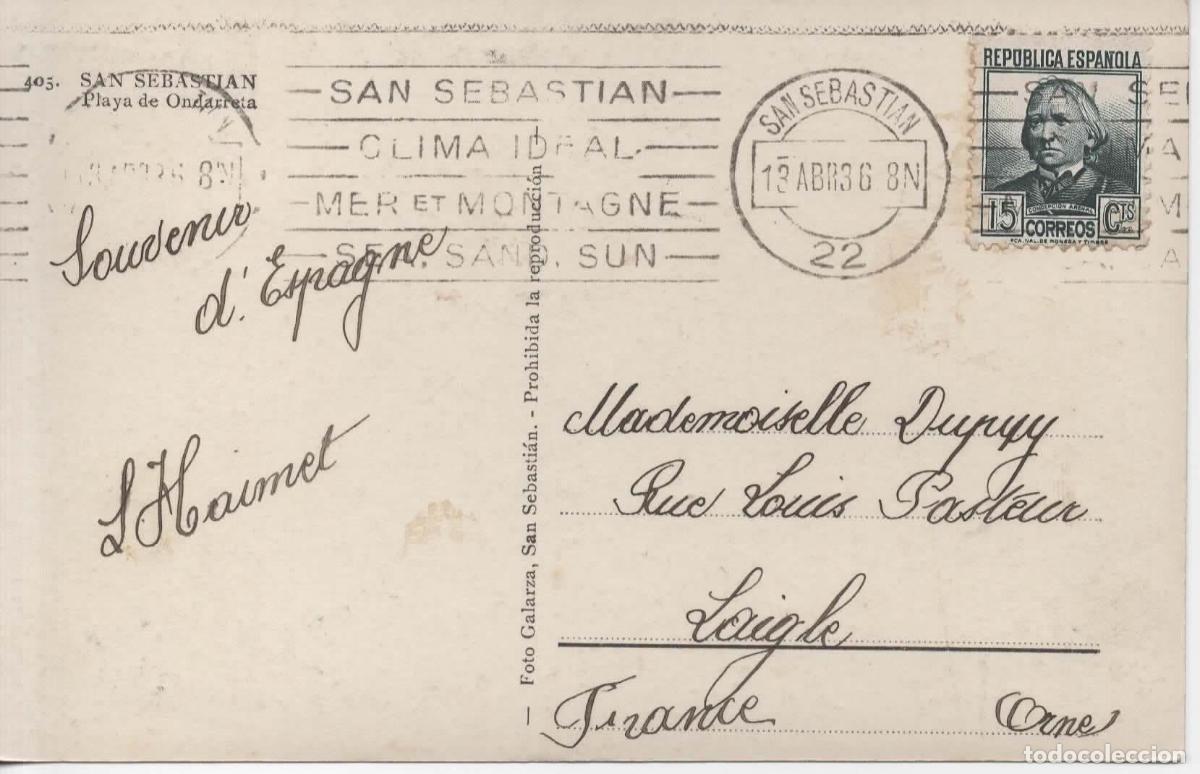 405. SAN SEBASTIAN
Playa de Ondarreta
SAN SEBASTIAN
CLIMA IDEAL
MER ET MONTAGNE
SEA, SAND, SUN
SAN SEBASTIAN
13 ABR 36 8N
22
REPÚBLICA ESPAÑOLA
CONCEPCIÓN ARENAL
15 CTS
CORREOS
FCA. NAL. DE MONEDA Y TIMBRE
Souvenir
d'Espagne
L Haimet
Foto Galarza, San Sebastián. - Prohibida la reproducción
Mademoiselle Dupuy
Rue Louis Pasteur
Laigle
France (Orne)
todocoleccion